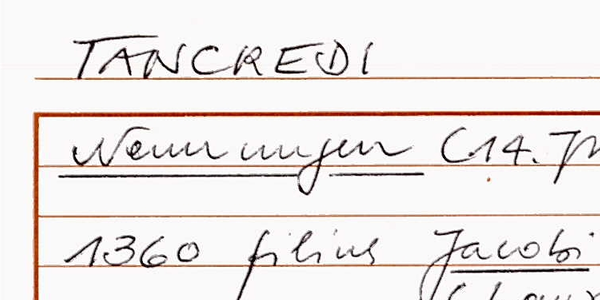 TANCREDI
Nennungen (14. Jh
1360 filius Jacobi